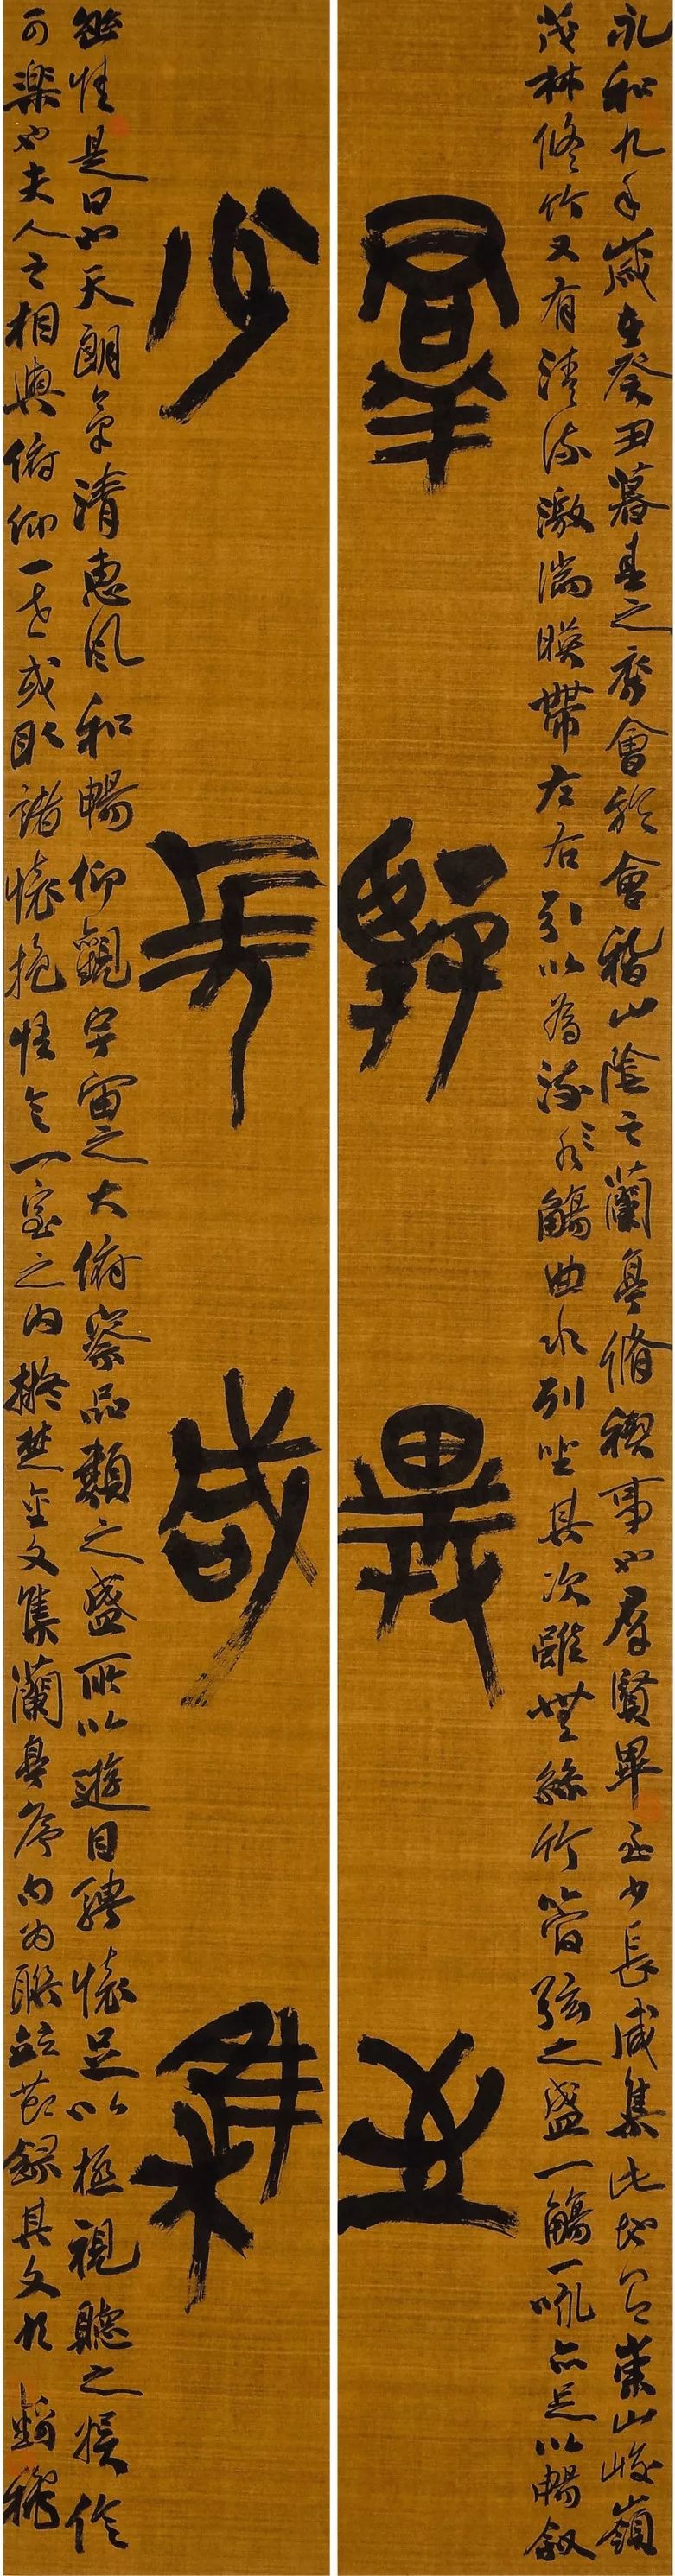 永和九年歲在癸丑暮春之初會於會稽山陰之蘭亭脩禊事也群賢畢至少長咸集此地有崇山峻嶺
茂林修竹又有清流激湍暎帶左右引以為流觴曲水列坐其次雖無絲竹管弦之盛一觴一詠亦足以暢叙
羣賢畢至
少長咸集
幽情是日也天朗氣清惠風和暢仰觀宇宙之大俯察品類之盛所以遊目騁懷足以極視聽之娛信
可樂也夫人之相與俯仰一世或取諸懷抱悟言一室之內擬楚金文集蘭亭序句為聯並節錄其文於